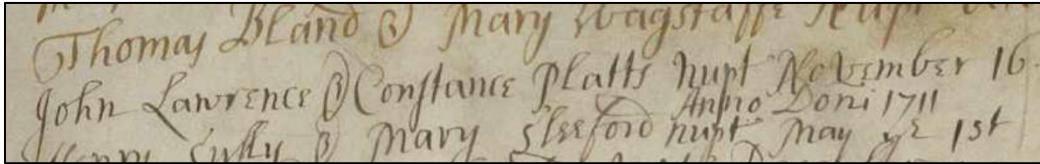 Thomas Bland & Mary Wagstaffe Nupt
John Lawrence & Constance Platts Nupt November 16
Anno Doni 1711
& Mary Sleeford nupt May ye 1st